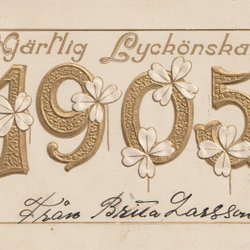 Hjärtlig Lyckönska
1905
Från Brita Larsson